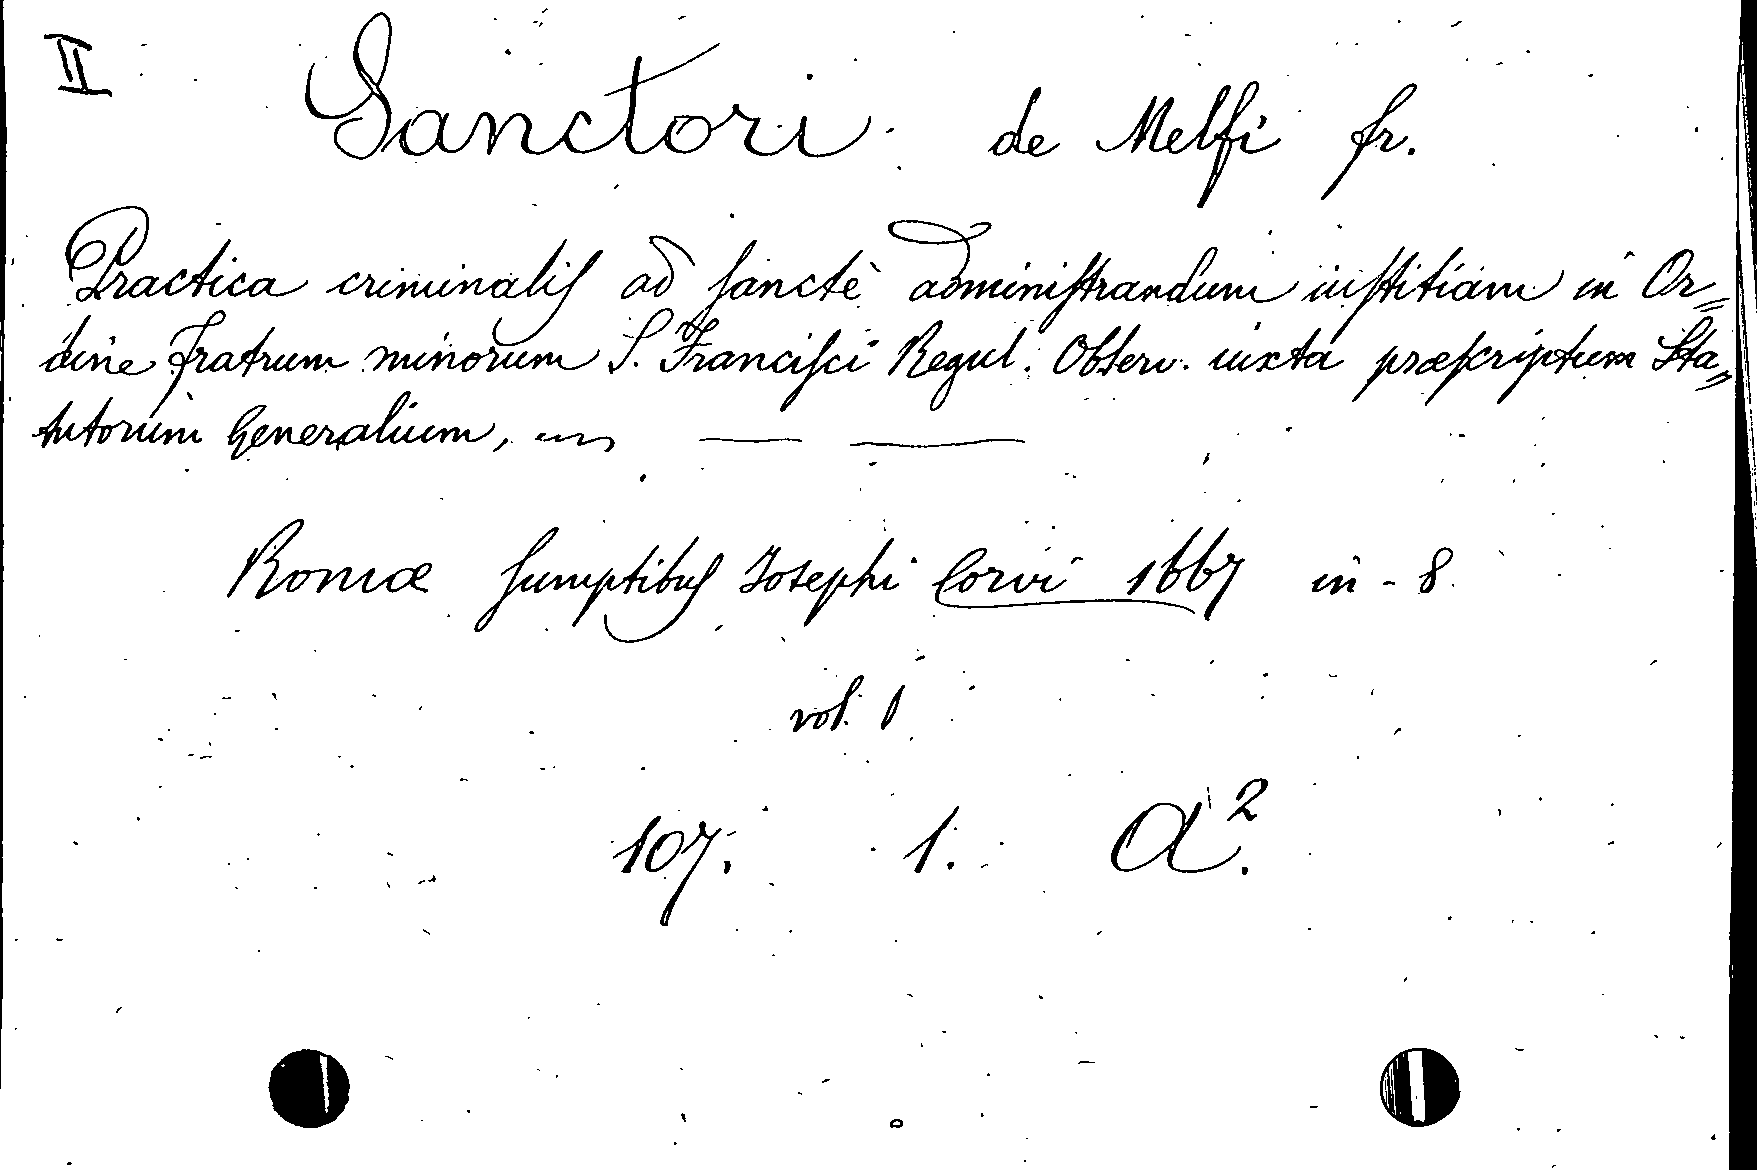 II
Sanctori de Melfi fr.
Practica criminalis ad sanctè administrandum iustitiam in Or=
dine Fratrum minorum S. Francisci Regul. Observ. iuxta præscriptum Sta=
tutorum Generalium,
Romæ sumptibus Iosephi Corvi 1667 in-8
vol. 1
107. 1. A².